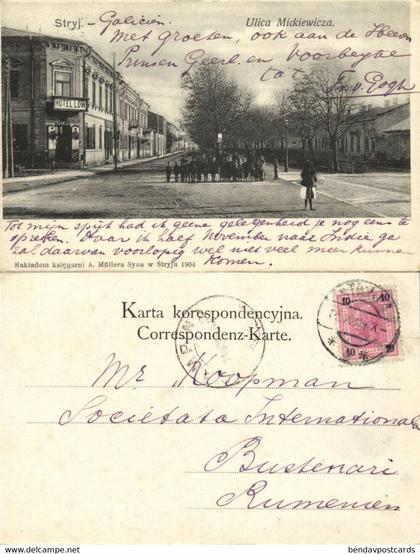 Stryj. - Galicien. Ulica Mickiewicza.
Met groeten, ook aan de Heeren
Prinsen Geerl. en Voorbeytel
tat J. v. Gogh
HOTEL LOW
Tot mijn spijt had ik geene gelegenheid je nog eens te
spreken. Daar ik half November naar Indië ga
zal daarvan voorlopig wel niet veel meer kunnen
komen.
Nakładem księgarni A. Müllera Syna w Stryju 1904
Karta korespondencyjna.
Correspondenz-Karte.
10 10
10 10
Mr Koopman
Societata Internationala
Bustenari
Rumenien
© https://www.delcampe.net bendavpostcards